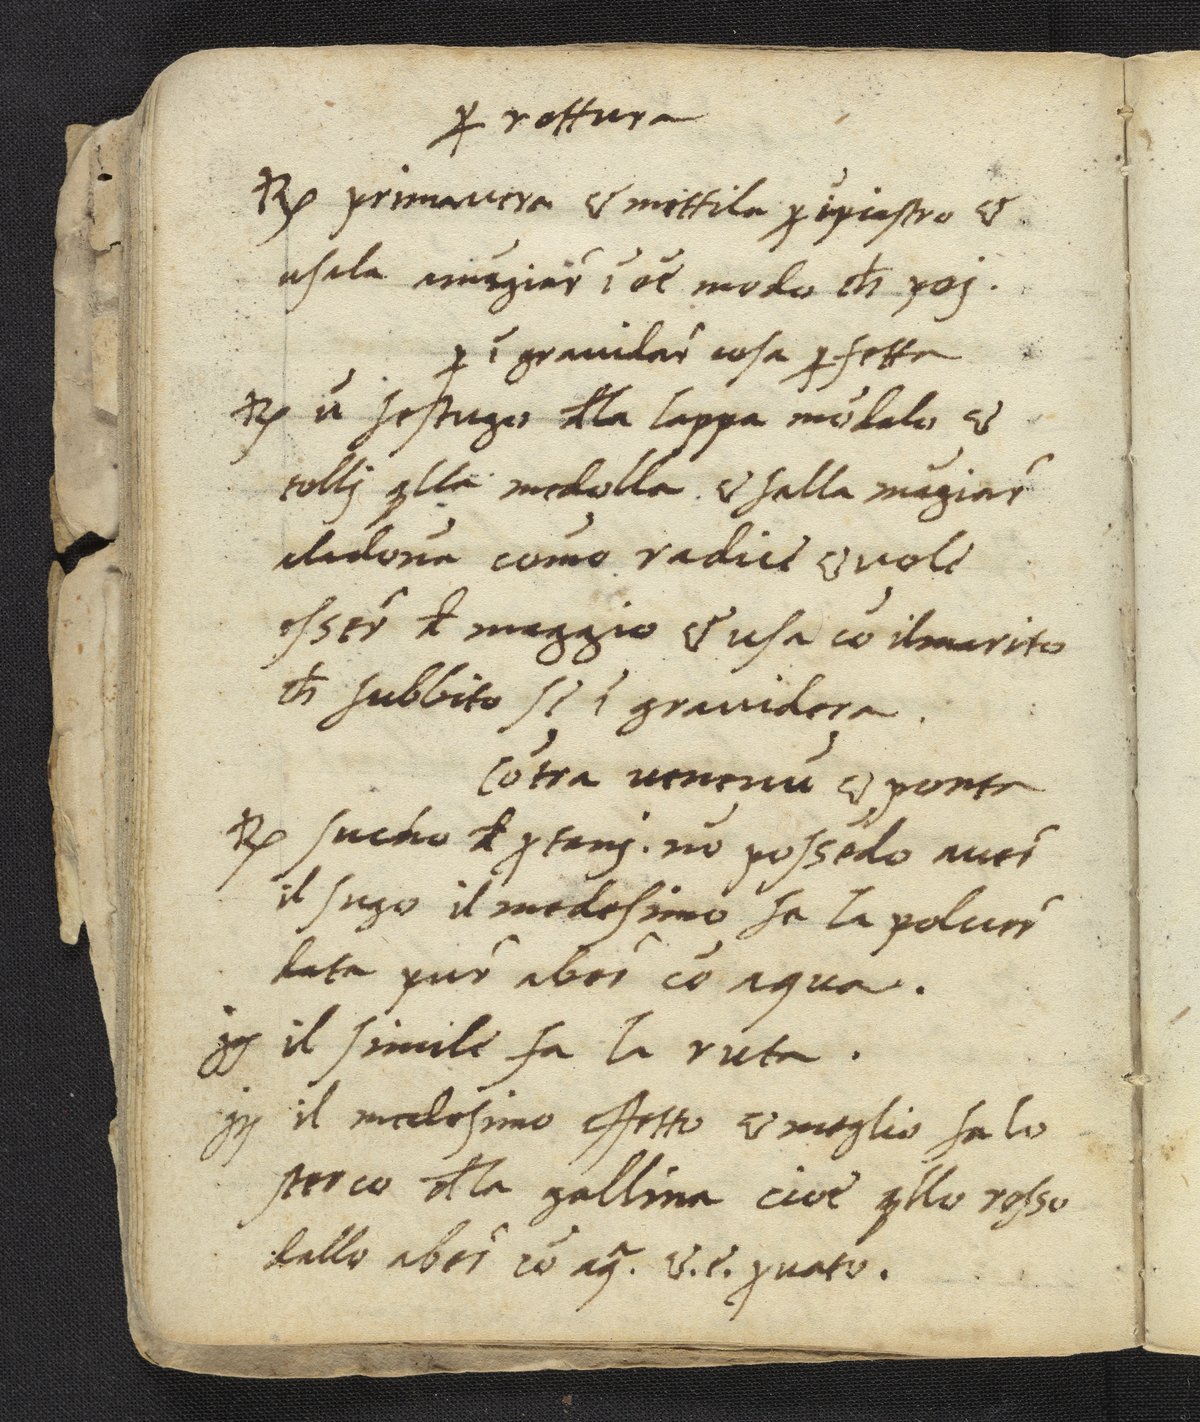 ꝑ rottura
℞ primavera & mettila ꝑ īpiastro &
usala a māgiar̄ ī oē modo ch̄ poj.
ꝑ ī gravidar̄ cosa ꝑfetta
℞ ū festugo dl̄la lappa mōdalo &
tollj q̄lla medolla & falla māgiar̄
ala dōna comō radice & vole
esser̄ đ maggio & usa cō il marito
ch̄ subbito se ī gravidera.
Cōtra venenū & ponta
℞ sucho đ nō possēdo aver̄
il sugo il medesimo fa la polver̄
data pur̄ a ber̄ cō aqua.
il simile fa la ruta.
il medesimo effetto & meglio fa lo
sterco dl̄la gallina cioe q̄llo rosso
dallo a ber̄ cō aq̄. &.e. ꝓvato.